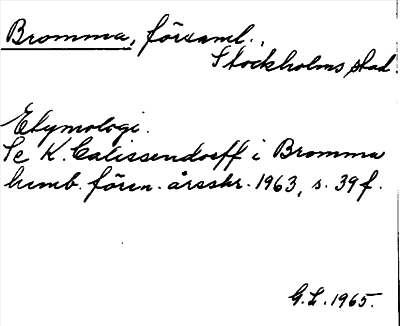 Bromma, församl.,
Stockholms stad
Etymologi.
Se K. Calissendorff i Bromma
hemb. fören. årsskr. 1963, s. 39 f.
G.L. 1965.